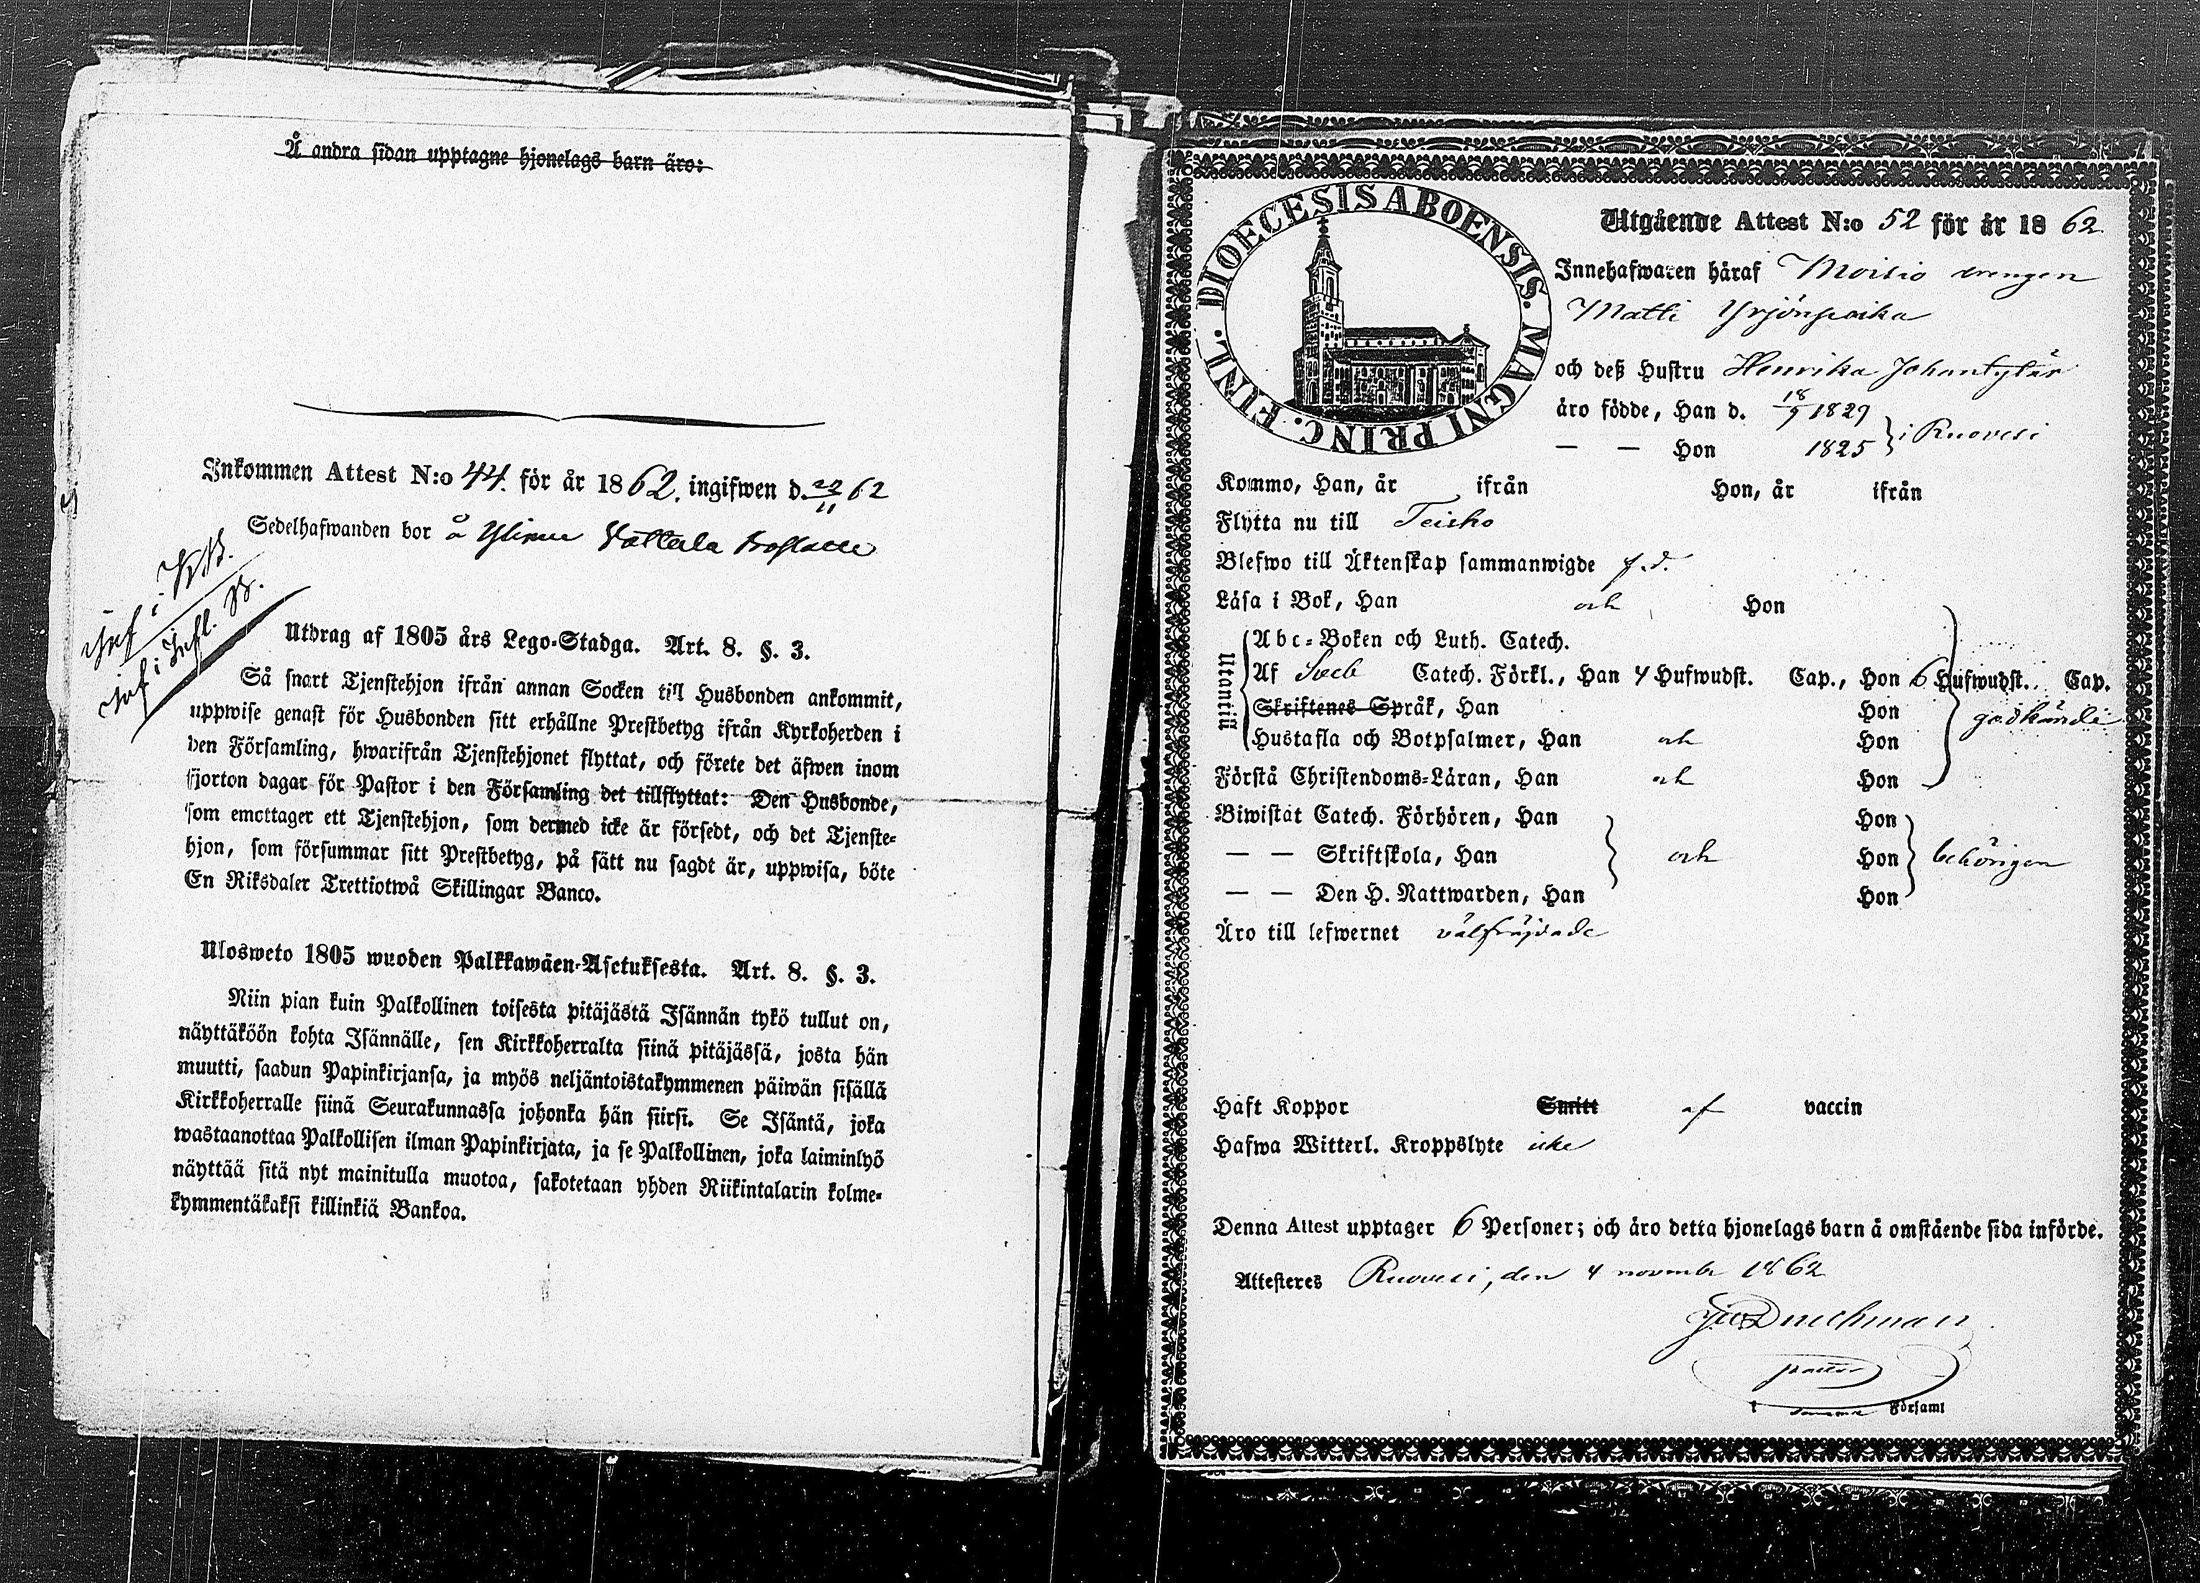 Å andra sidan upptagne hjonelags barn äro:
Inkommen Attest N:o 44. för år 1862. ingifwen d. 22/11 62
Sedelhafwanden bor å
inf i KB.
inf i Infl. B.
Utdrag af 1805 års Lego-Stadga. Art. 8. §. 3.
Så snart Tjenstehjon ifrån annan Socken till Husbonden ankommit,
uppwise genast för Husbonden sitt erhållne Prestbetyg ifrån Kyrkoherden i
den Församling, hwarifrån Tjenstehjonet flyttat, och förete det äfwen inom
fjorton dagar för Pastor i den Församling det tillflyttat: Den Husbonde,
som emottager ett Tjenstehjon, som dermed icke är försedt, och det Tjenste-
hjon, som försummar sitt Prestbetyg, på sätt nu sagdt är, uppwisa, böte
En Riksdaler Trettiotwå Skillingar Banco.
Ulosweto 1805 wuoden Palkkawäen-Asetuksesta. Art. 8. §. 3.
Niin pian kuin Palkollinen toisesta pitäjästä Isännän tykö tullut on,
näyttäköön kohta Isännälle, sen Kirkkoherralta siinä pitäjässä, josta hän
muutti, saadun Papinkirjansa, ja myös neljäntoistakymmenen päiwän sisällä
Kirkkoherralle siinä Seurakunnassa johonka hän siirsi. Se Isäntä, joka
wastaanottaa Palkollisen ilman Papinkirjata, ja se Palkollinen, joka laiminlyö
näyttää sitä nyt mainitulla muotoa, sakotetaan yhden Riikintalarin kolme-
kymmentäkaksi killinkiä Bankoa.
DIOECESIS ABOENSIS. MAGNI PRINC. FINL.
Utgående Attest N:o 52 för år 1862.
Innehafwaren häraf Moisio drengen
Matti Yrjönpoika
och deß Hustru Henrika Johantytär
äro födde, Han d. 18/9 1829
— — Hon 1825 } i Ruovesi
Kommo, Han, år ifrån Hon, år ifrån
Flytta nu till Teisko
Blefwo till Äktenskap sammanwigde f.d.
Läsa i Bok, Han och Hon
Utantill
Abc-Boken och Luth. Catech.
Af Sveb Catech. Förkl., Han 4 Hufwudst. Cap., Hon 6 Hufwudst. Cap.
Skriftenes Språk, Han Hon godkändt
Hustafla och Botpsalmer, Han och Hon
Förstå Christendoms-Läran, Han och Hon
Biwistat Catech. Förhören, Han Hon
— — Skriftskola, Han och Hon behörigen
— — Den H. Nattwarden, Han Hon
Äro till lefwernet välfräjdade
Haft Koppor Smitt af vaccin
Hafwa Witterl. Kroppslyte icke
Denna Attest upptager 6 Personer; och äro detta hjonelags barn å omstående sida införde.
Attesteres Ruovesi, den 4 november 1862
pastor
i Församl